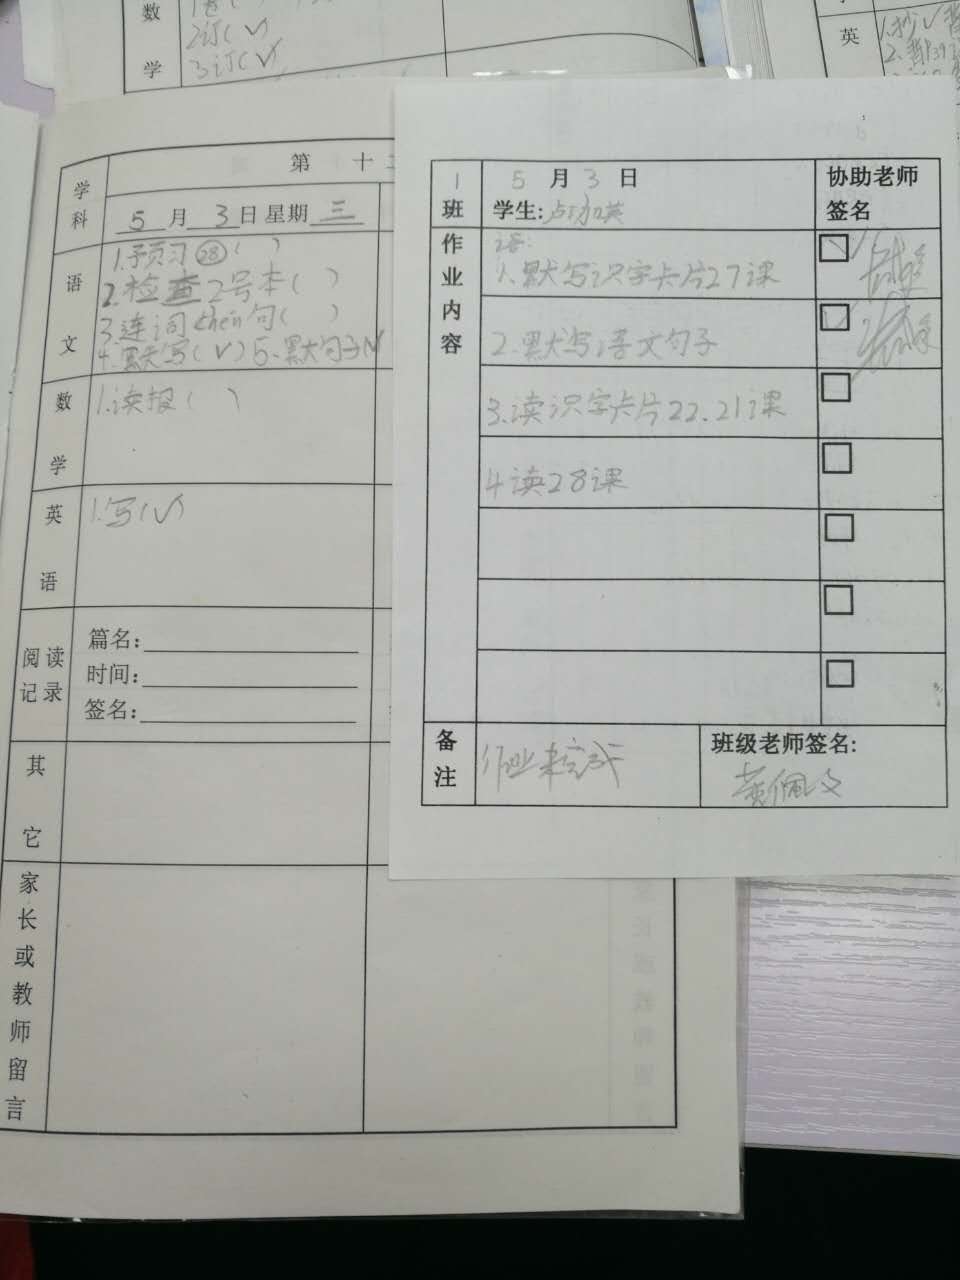 数
学
2订(√)
3订(√)
英
第 十
学科
5 月 3 日 星期 三
语文
1.预习㉘( )
2.检查2号本( )
3.连词chén句( )
4.默写(√) 5.默句子(√
数学
1.读报( )
英语
1.写(√)
阅读记录
篇名:
时间:
签名:
其它
家长或教师留言
1班
5 月 3 日
学生:
协助老师签名
作业内容
语:
1.默写识字卡片27课
2.默写语文句子
3.读识字卡片22.21课
4.读28课
备注
作业未完成
班级老师签名:
黄佩文